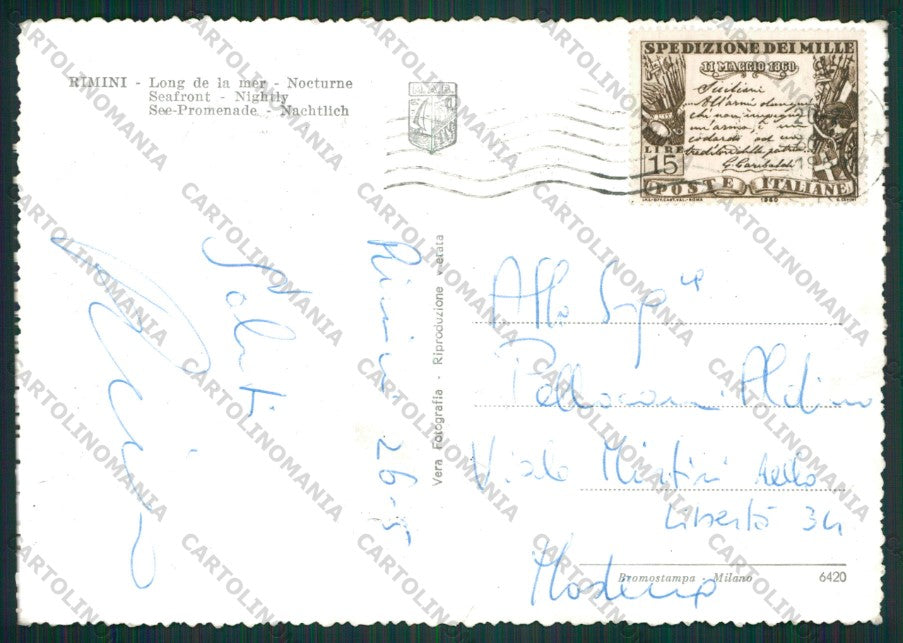 RIMINI - Long de la mer - Nocturne
Seafront - Nightly
See-Promenade - Nachtlich
SPEDIZIONE DEI MILLE
11 MAGGIO 1860
Siciliani
All'armi
che non impugna
un'arma, è un
codardo od un
traditore della patria
G. Garibaldi
LIRE
15
POSTE ITALIANE
1960
Saluti
Rimini 26-5
Vera Fotografia - Riproduzione vietata
Alla
Aldino
Viale Martiri della
Libertà 34
Modena
Bromostampa - Milano
6420
CARTOLINOMANIA